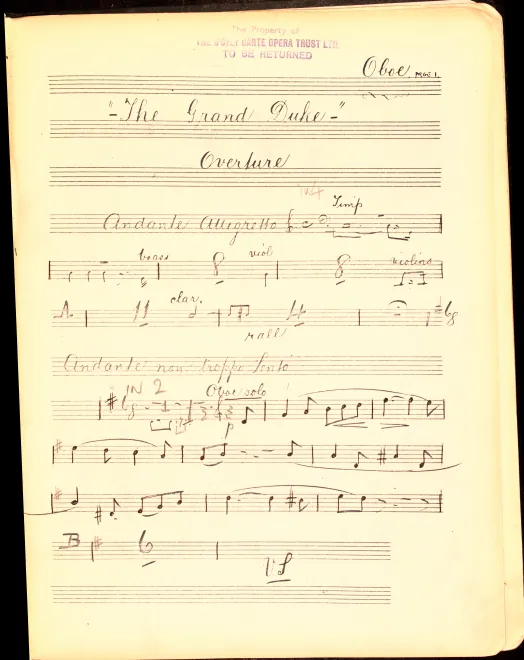 The Property of
THE D'OYLY CARTE OPERA TRUST LTD.
TO BE RETURNED
Oboe. PAGE 1.
"-The Grand Duke-"
Overture
in 4
Timp
Andante Allegretto
brass 8 viol 8 violins
A 11 clar. 4 6 8
rall
Andante non troppo lento
IN 2 Oboe solo
6 8
p
B 6
VS